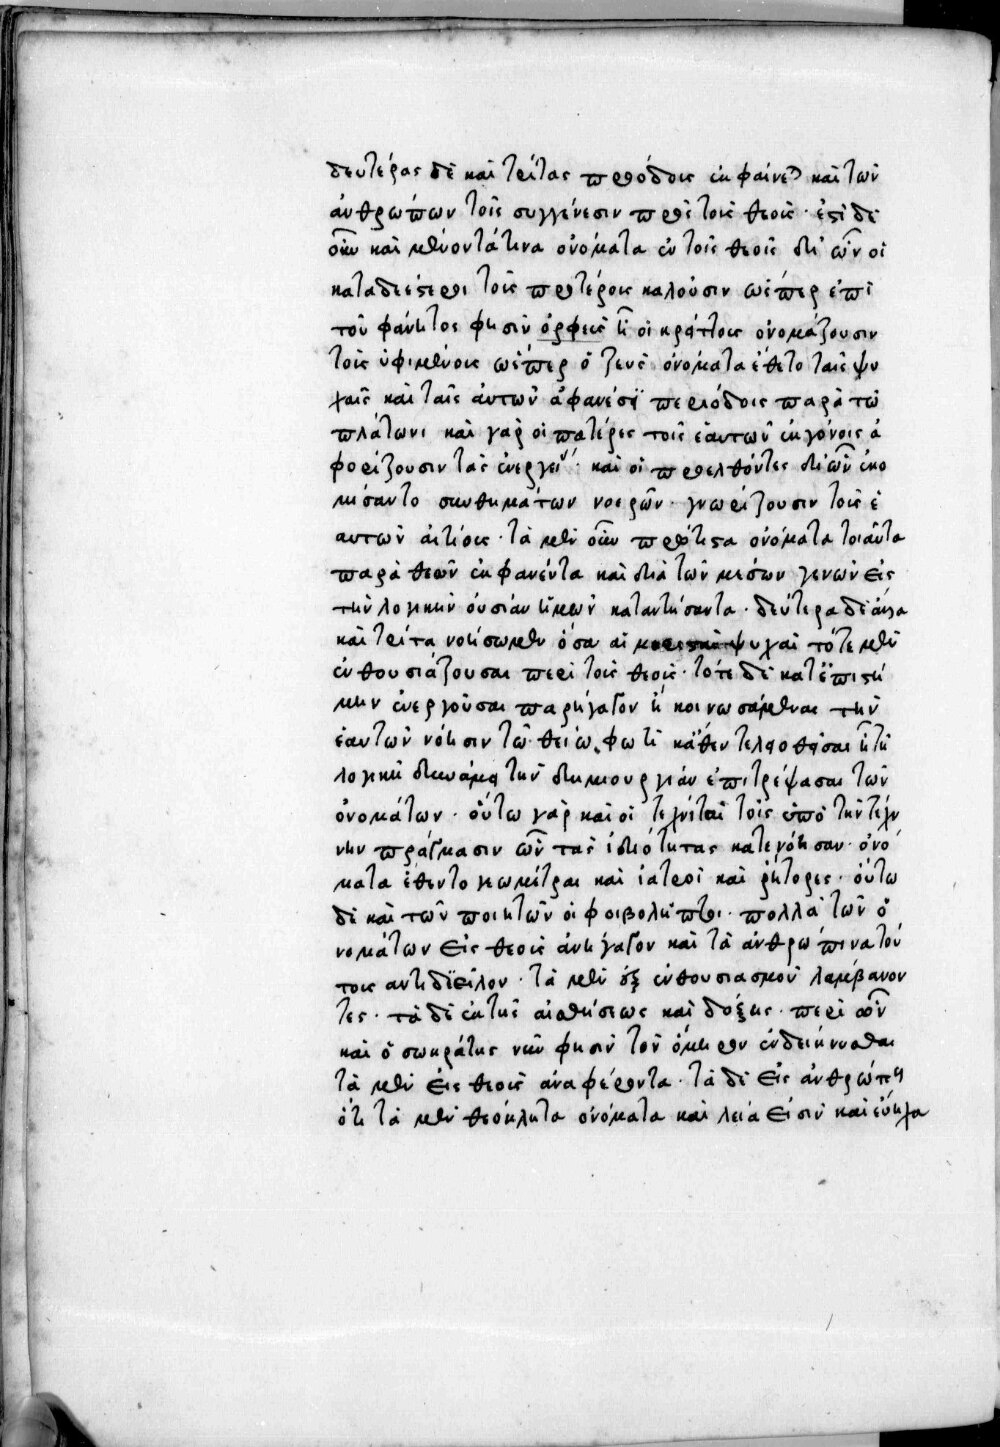 δευτέρας δὲ καὶ τρίτας προόδοις ἐκφαίνει καὶ τῶν
ἀνθρώπων τοῖς συγγένεσιν πρὸς τοὺς θεοὺς· ἐστὶ δὲ
οὖν καὶ μένοντά τινα ὀνόματα ἐν τοῖς θεοῖς δι' ὧν οἱ
καταδεέστεροι τοὺς προτέρους καλοῦσιν ὥσπερ ἐπὶ
τοῦ φάνητος φησὶν ὀρφεὺς ἢ οἱ κρείττους ὀνομάζουσιν
τοὺς ὑφιμένους ὥσπερ ὁ ζεὺς ὀνόματα ἔθετο ταῖς ψυ
χαῖς καὶ ταῖς αὐτῶν ἀφανέσι περιόδοις παρὰ τῶ
πλάτωνι καὶ γὰρ οἱ πατέρες τοῖς ἑαυτῶν ἐκγόνοις ἀ
φορίζουσιν τὰς ἐνεργείας· καὶ οἱ προελθόντες δι' ὧν ἐκο
μίσαντο συνθημάτων νοερῶν· γνωρίζουσιν τοὺς ἑ
αυτῶν αἰτίους· τὰ μὲν οὖν πρώτιστα ὀνόματα τοιαῦτα
παρὰ θεῶν ἐκφανέντα καὶ διὰ τῶν μέσων γενῶν εἰς
τὴν λογικὴν οὐσίαν ἡμῶν καταντήσαντα· δεύτερα δὲ ἄλλα
καὶ τρίτα νοήσωμεν ὅσα αἱ μερισταὶ ψυχαὶ τότε μὲν
ἐνθουσιάζουσαι περὶ τοὺς θεοὺς· τότε δὲ κατ' ἐπιστή
μην ἐνεργοῦσαι παρήγαγον ἢ κοινωσάμεναι τὴν
ἑαυτῶν νόησιν τῶ θείω φωτὶ κἀκεῖθεν τελεωθεῖσαι ἢ τῆ
λογικῆ δυνάμει τὴν δημιουργίαν ἐπιτρέψασαι τῶν
ὀνομάτων· οὕτω γὰρ καὶ οἱ τεχνῖται τοῖς ὑπὸ τὴν τέχ
νην πράγμασιν ὧν τὰς ἰδιότητας κατενόησαν· ὀνό
ματα ἔθεντο γεωμέτραι καὶ ἰατροὶ καὶ ῥήτορες· οὕτω
δὲ καὶ τῶν ποιητῶν οἱ φοιβόληπτοι· πολλὰ τῶν ὀ
νομάτων εἰς θεοὺς ἀνήγαγον καὶ τὰ ἀνθρώπινα τού
τοις ἀντιδιεῖλον· τὰ μὲν ἐξ ἐνθουσιασμοῦ λαμβάνον
τες· τὰ δὲ ἐκ τῆς αἰσθήσεως καὶ δόξης· περὶ ὧν
καὶ ὁ σωκράτης νῦν φησὶν τὸν ὅμηρον ἐνδείκνυσθαι
τὰ μὲν εἰς θεοὺς ἀναφέροντα· τὰ δὲ εἰς ἀνθρώπους
ὅτι τὰ μὲν θεόκλητα ὀνόματα καὶ λεῖά εἰσιν καὶ εὔηχα